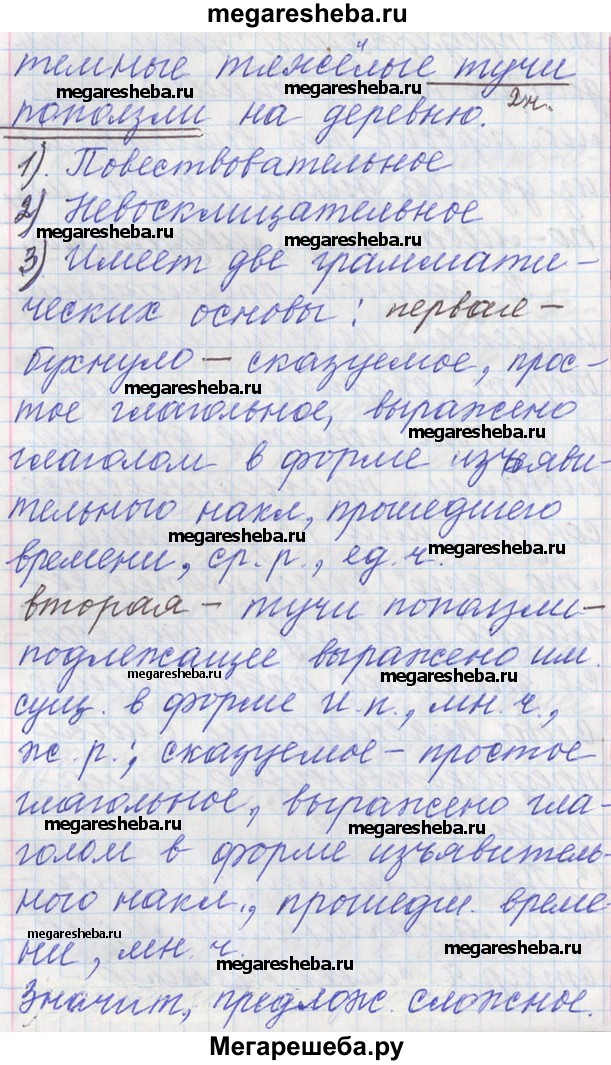 megaresheba.ru
темные тяжёлые тучи
megaresheba.ru megaresheba.ru
поползли на деревню.
2ч.
1). Повествовательное
2) Невосклицательное
megaresheba.ru megaresheba.ru
3) Имеет две граммати-
ческих основы: первая –
бухнуло – сказуемое, прос-
megaresheba.ru
тое глагольное, выражено
megaresheba.ru
глаголом в форме изъяви-
тельного накл, прошедшего
megaresheba.ru
времени, ср. р., ед. ч.
megaresheba.ru
вторая – тучи поползли –
подлежащее выражено им.
megaresheba.ru megaresheba.ru
сущ. в форме И.п., мн. ч.,
ж. р.; сказуемое – простое
глагольное, выражено гла-
megaresheba.ru megaresheba.ru
голом в форме изъявитель-
ного накл., прошедш. време-
megaresheba.ru
ни, мн. ч.
megaresheba.ru megaresheba.ru
Значит, предлож. сложное.
Мегарешеба.ру